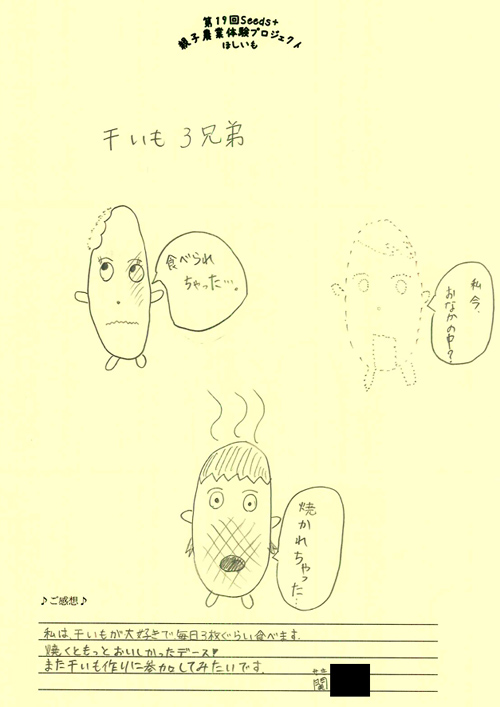 第19回Seeds+
親子農業体験プロジェクト
ほしいも
干いも 3兄弟
食べられ
ちゃった…。
私今、
おなかの中？
焼かれちゃった…
♪ご感想♪
私は、干いもが大好きで、毎日3枚ぐらい食べます。
焼くともっとおいしかったデース♥
また干いも作りに参加してみたいです。